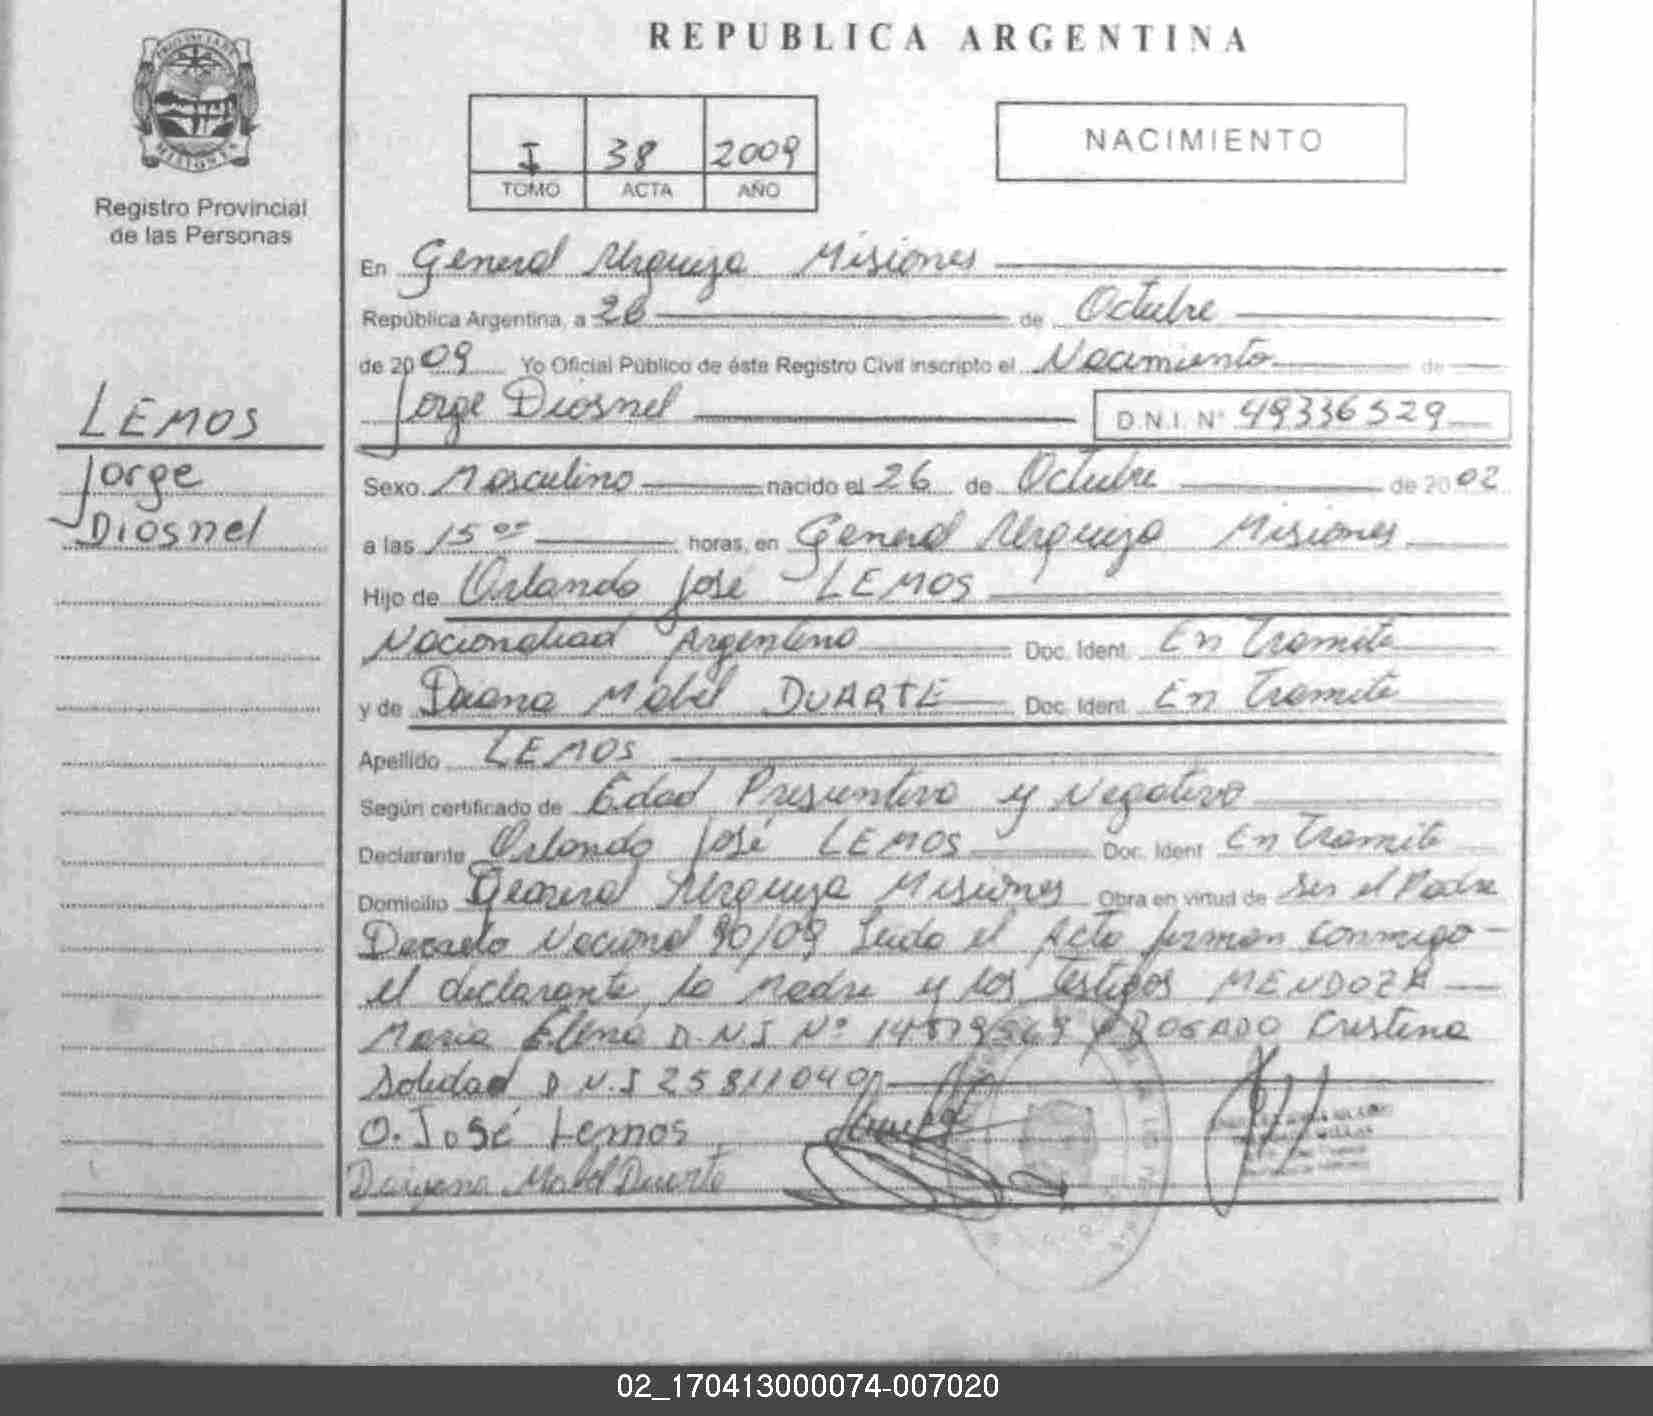 REPUBLICA ARGENTINA
PROVINCIA DE
MISIONES
Registro Provincial
de las Personas
I 38 2009
TOMO ACTA AÑO
NACIMIENTO
LEMOS
Jorge
Diosnel
En General Urquiza Misiones
República Argentina, a 26 de Octubre
de 2009 Yo Oficial Público de éste Registro Civil inscripto el Nacimiento de
Jorge Diosnel D.N.I. N° 49336529
Sexo Masculino nacido el 26 de Octubre de 2002
a las 15 00 horas, en General Urquiza Misiones
Hijo de Orlando José LEMOS
Nacionalidad Argentino Doc. Ident. En Tramite
y de Daiana Mabel DUARTE Doc. Ident. En Tramite
Apellido LEMOS
Según certificado de Edad Presuntiva y Negativo
Declarante Orlando José LEMOS Doc. Ident En Tramite
Domicilio General Urquiza Misiones Obra en virtud de ser el Padre
Decreto Nacional 90/09 Leida el Acta firman conmigo
el declarante, la Madre y los testigos MENDOZA
Maria Elena D.N.I N° y ROSADO Cristina
Soledad D.N.I 25811040
O. José Lemos
Daiyana Mabel Duarte
02_170413000074-007020